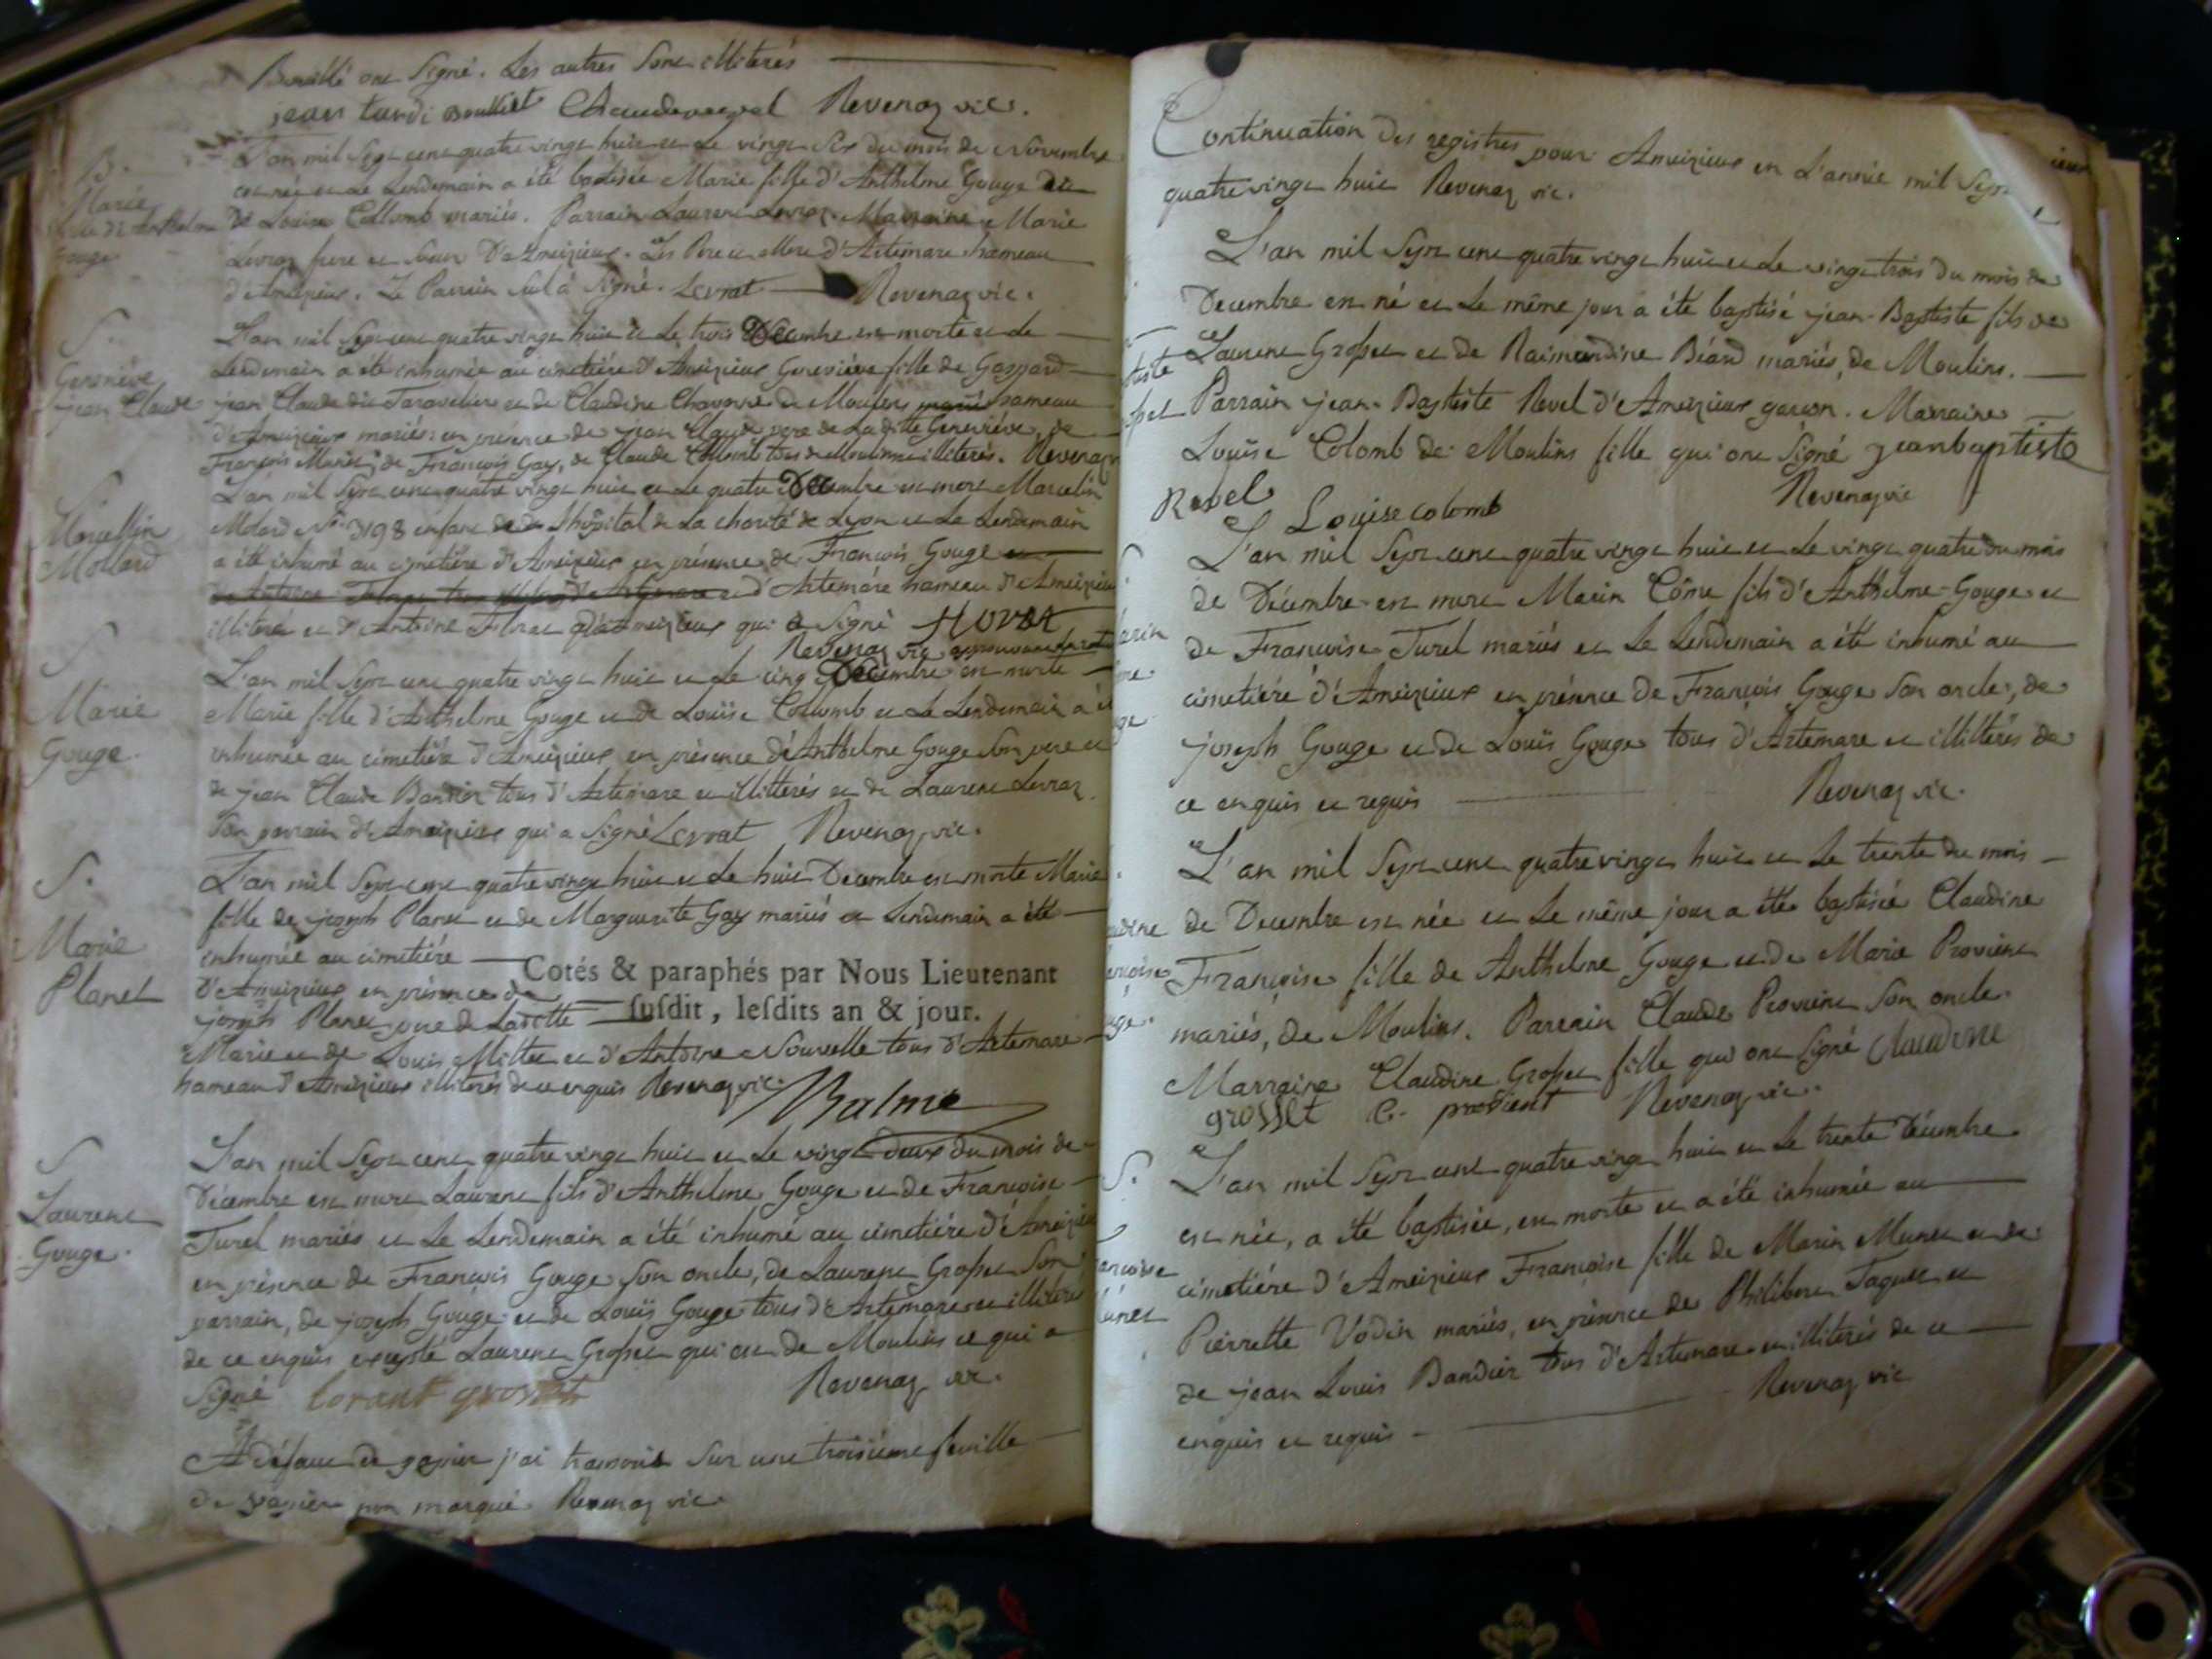 Bouillé ont Signé. Les autres Sont illiterés
jean tardi Boullet Chaudereyval Revenaz vic.
L'an mil Sept cent quatre vingt huit et Le vingt Six du mois de Novembre
est née et Le Lendemain a été batisée Marie fille d'Anthelme Gouge et
de Louise Collomb mariés. Parrain Laurent Levrat. Marraine Marie
Levrat frere et Soeur D'Ameizieux. Les Pere et Mere d'Artemare hameau
d'Ameizieux. Le Parrain Seul a Signé. Levrat Revenaz vic.
B.
Marie
fille d'Anthelme
Gouge
L'an mil Sept cent quatre vingt huit et Le trois Decembre est morte et Le
Lendemain a été inhumée au cimetière d'Ameizieux Geneviéve fille de Gaspard
jean Claude dit Taravelier et de Claudine Chavanne de Moulins hameau
d'Ameizieux mariés en présence de jean Claude pere de La ditte Geneviéve, de
François Munet, de François Gay, de Claude Collomb tous de Moulins illiterés. Revenaz
S.
Geneviéve
jean Claude
L'an mil Sept cent quatre vingt huit et Le quatre Decembre est mort Marcelin
Molard N° 3198 enfant de L'hôpital de La charité de Lyon et Le Lendemain
a été inhumé au cimetière d'Ameizieux en présence de François Gouge
d'Artemare hameau d'Ameizieux
illiteré et d'Antoine Floret d'Ameizieux qui a Signé
Revenaz vic
S
Marcellin
Mollard
L'an mil Sept cent quatre vingt huit et Le cinq Decembre est morte
Marie fille d'Anthelme Gouge et de Louïse Collomb et Le Lendemain a été
inhumée au cimetière d'Ameizieux en présence d'Anthelme Gouge Son pere et
de jean Claude Bandier tous d'Artemare et illitterés et de Laurent Levrat
Son parrain d'Ameizieux qui a Signé Levrat Revenaz vic.
S
Marie
Gouge.
L'an mil Sept cent quatre vingt huit et Le huit Decembre est morte Marie
fille de joseph Planet et de Marguerite Gay mariés et Lendemain a été
inhumée au cimetiére
d'Ameizieux en présence de
joseph Planet pere de Laditte
Marie et de Louis Millet et d'Antoine Nouvelle tous d'Artemare
hameau d'Ameizieux illiterés de ce enquis Revenaz vic.
S.
Marie
Planet
Cotés & paraphés par Nous Lieutenant
ſuſdit, leſdits an & jour.
Balme
L'an mil Sept cent quatre vingt huit et Le vingt deux du mois de
Décembre est mort Laurent fils d'Anthelme Gouge et de Françoise
Turel mariés et Le Lendemain a été inhumé au cimetiére d'Ameizieux
en présence de François Gouge Son oncle, de Laurent Grosset Son
parrain, de joseph Gouge et de Louïs Gouge tous d'Artemare et illiterés
de ce enquis excepté Laurent Grosset qui est de Moulins et qui a
Signé lorent grosset Revenaz vic.
S
Laurent
Gouge.
A défaut de papier j'ai transcris Sur une troisiéme feuille
de papier non marqué. Revenaz vic.
Continuation des registres pour Ameizieux en L'année mil Sept
quatre vingt huit Revenaz vic.
L'an mil Sept cent quatre vingt huit et Le vingt trois du mois de
Decembre est né et Le même jour a été baptisé jean-Baptiste fils de
Laurent Grosset et de Raimondine Béard mariés, de Moulins.
Parrain jean-Baptiste Revel d'Ameizieux garçon. Marraine
Louïse Colomb de Moulins fille qui ont Signé jeanbaptiste
Revel Louise colomb Revenaz vic
L'an mil Sept cent quatre vingt huit et Le vingt quatre du mois
de Décembre est mort Marin Côme fils d'Anthelme Gouge et
de Françoise Turel mariés et Le Lendemain a été inhumé au
cimetiére d'Ameizieux en présence de François Gouge Son oncle, de
joseph Gouge et de Louïs Gouge tous d'Artemare et illittérés de
ce enquis et requis Revenaz vic.
L'an mil Sept cent quatre vingt huit et Le trente du mois
de Decembre est née et Le même jour a été baptisée Claudine
Françoise fille de Anthelme Gouge et de Marie Provient
mariés, de Moulins. Parrain Claude Provient Son oncle.
Marraine Claudine Grosset fille qui ont Signé Claudine
grosset C. provient Revenaz vic.
S. L'an mil Sept cent quatre vingt huit et Le trente Décembre
est née, a été baptisée, est morte et a été inhumée au
cimetiére d'Ameizieux Françoise fille de Marin Munet et de
Pierrette Vodin mariés, en présence de Philibert Taguet et
de jean Louis Bandier tous d'Artemare et illiterés de ce
enquis et requis Revenaz vic